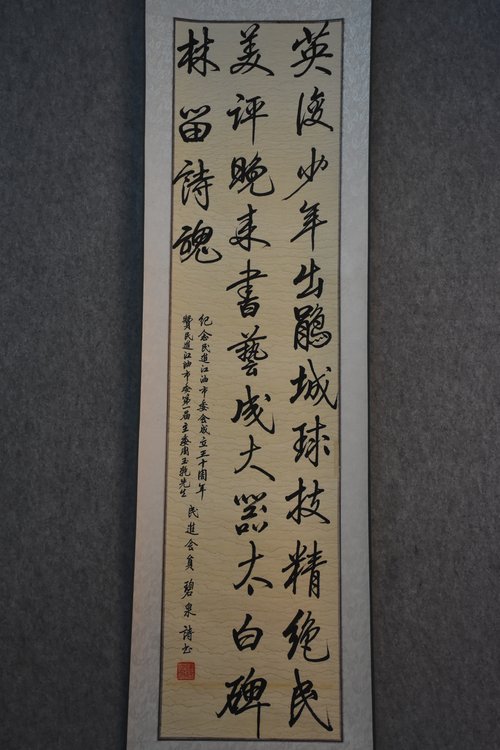 英俊少年出鵑城球技精绝民
美评晚来書藝成大器太白碑
林留詩魂
纪念民進江油市委会成立三十周年
贊民進江油市委第一届主委周玉乾先生
民進会員碧泉詩书